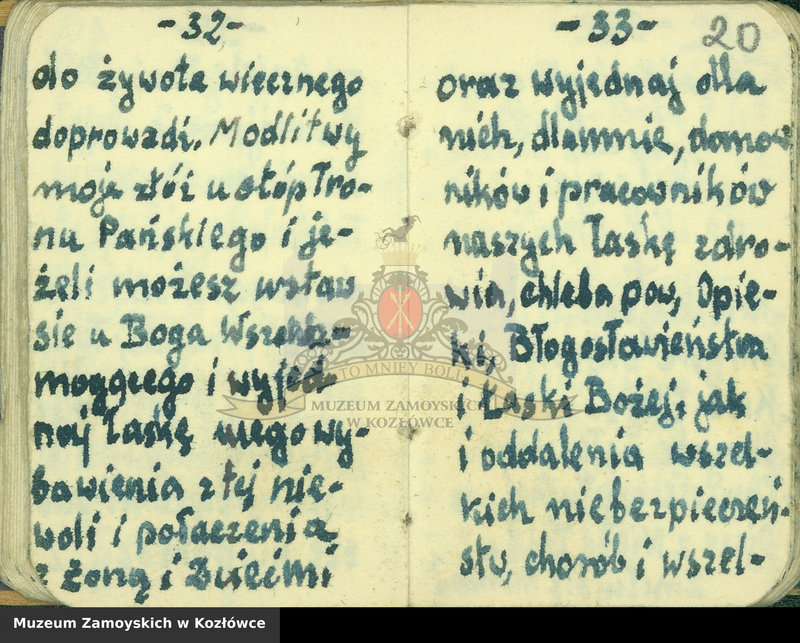 -32-
do żywota wiecznego
doprowadź. Modlitwy
moje złóż u stóp Tro-
nu Pańskiego i je-
żeli możesz wstaw
się u Boga Wszech-
mogącego i wyjed-
naj Łaskę mego wy-
bawienia z tej nie-
woli i połączenia
z Żoną i Dziećmi
-33- 20
oraz wyjednaj dla
nich, dla mnie, domow
ników i pracowników
naszych Łaskę zdro-
wia, chleba pow, Opie-
ki, Błogosławieństwa
i Łaski Bożej, jak
i oddalenia wszel-
kich niebezpieczeń-
stw, chorób i wszel-
TO MNIEY BOLI
MUZEUM ZAMOYSKICH
W KOZŁÓWCE
Muzeum Zamoyskich w Kozłówce